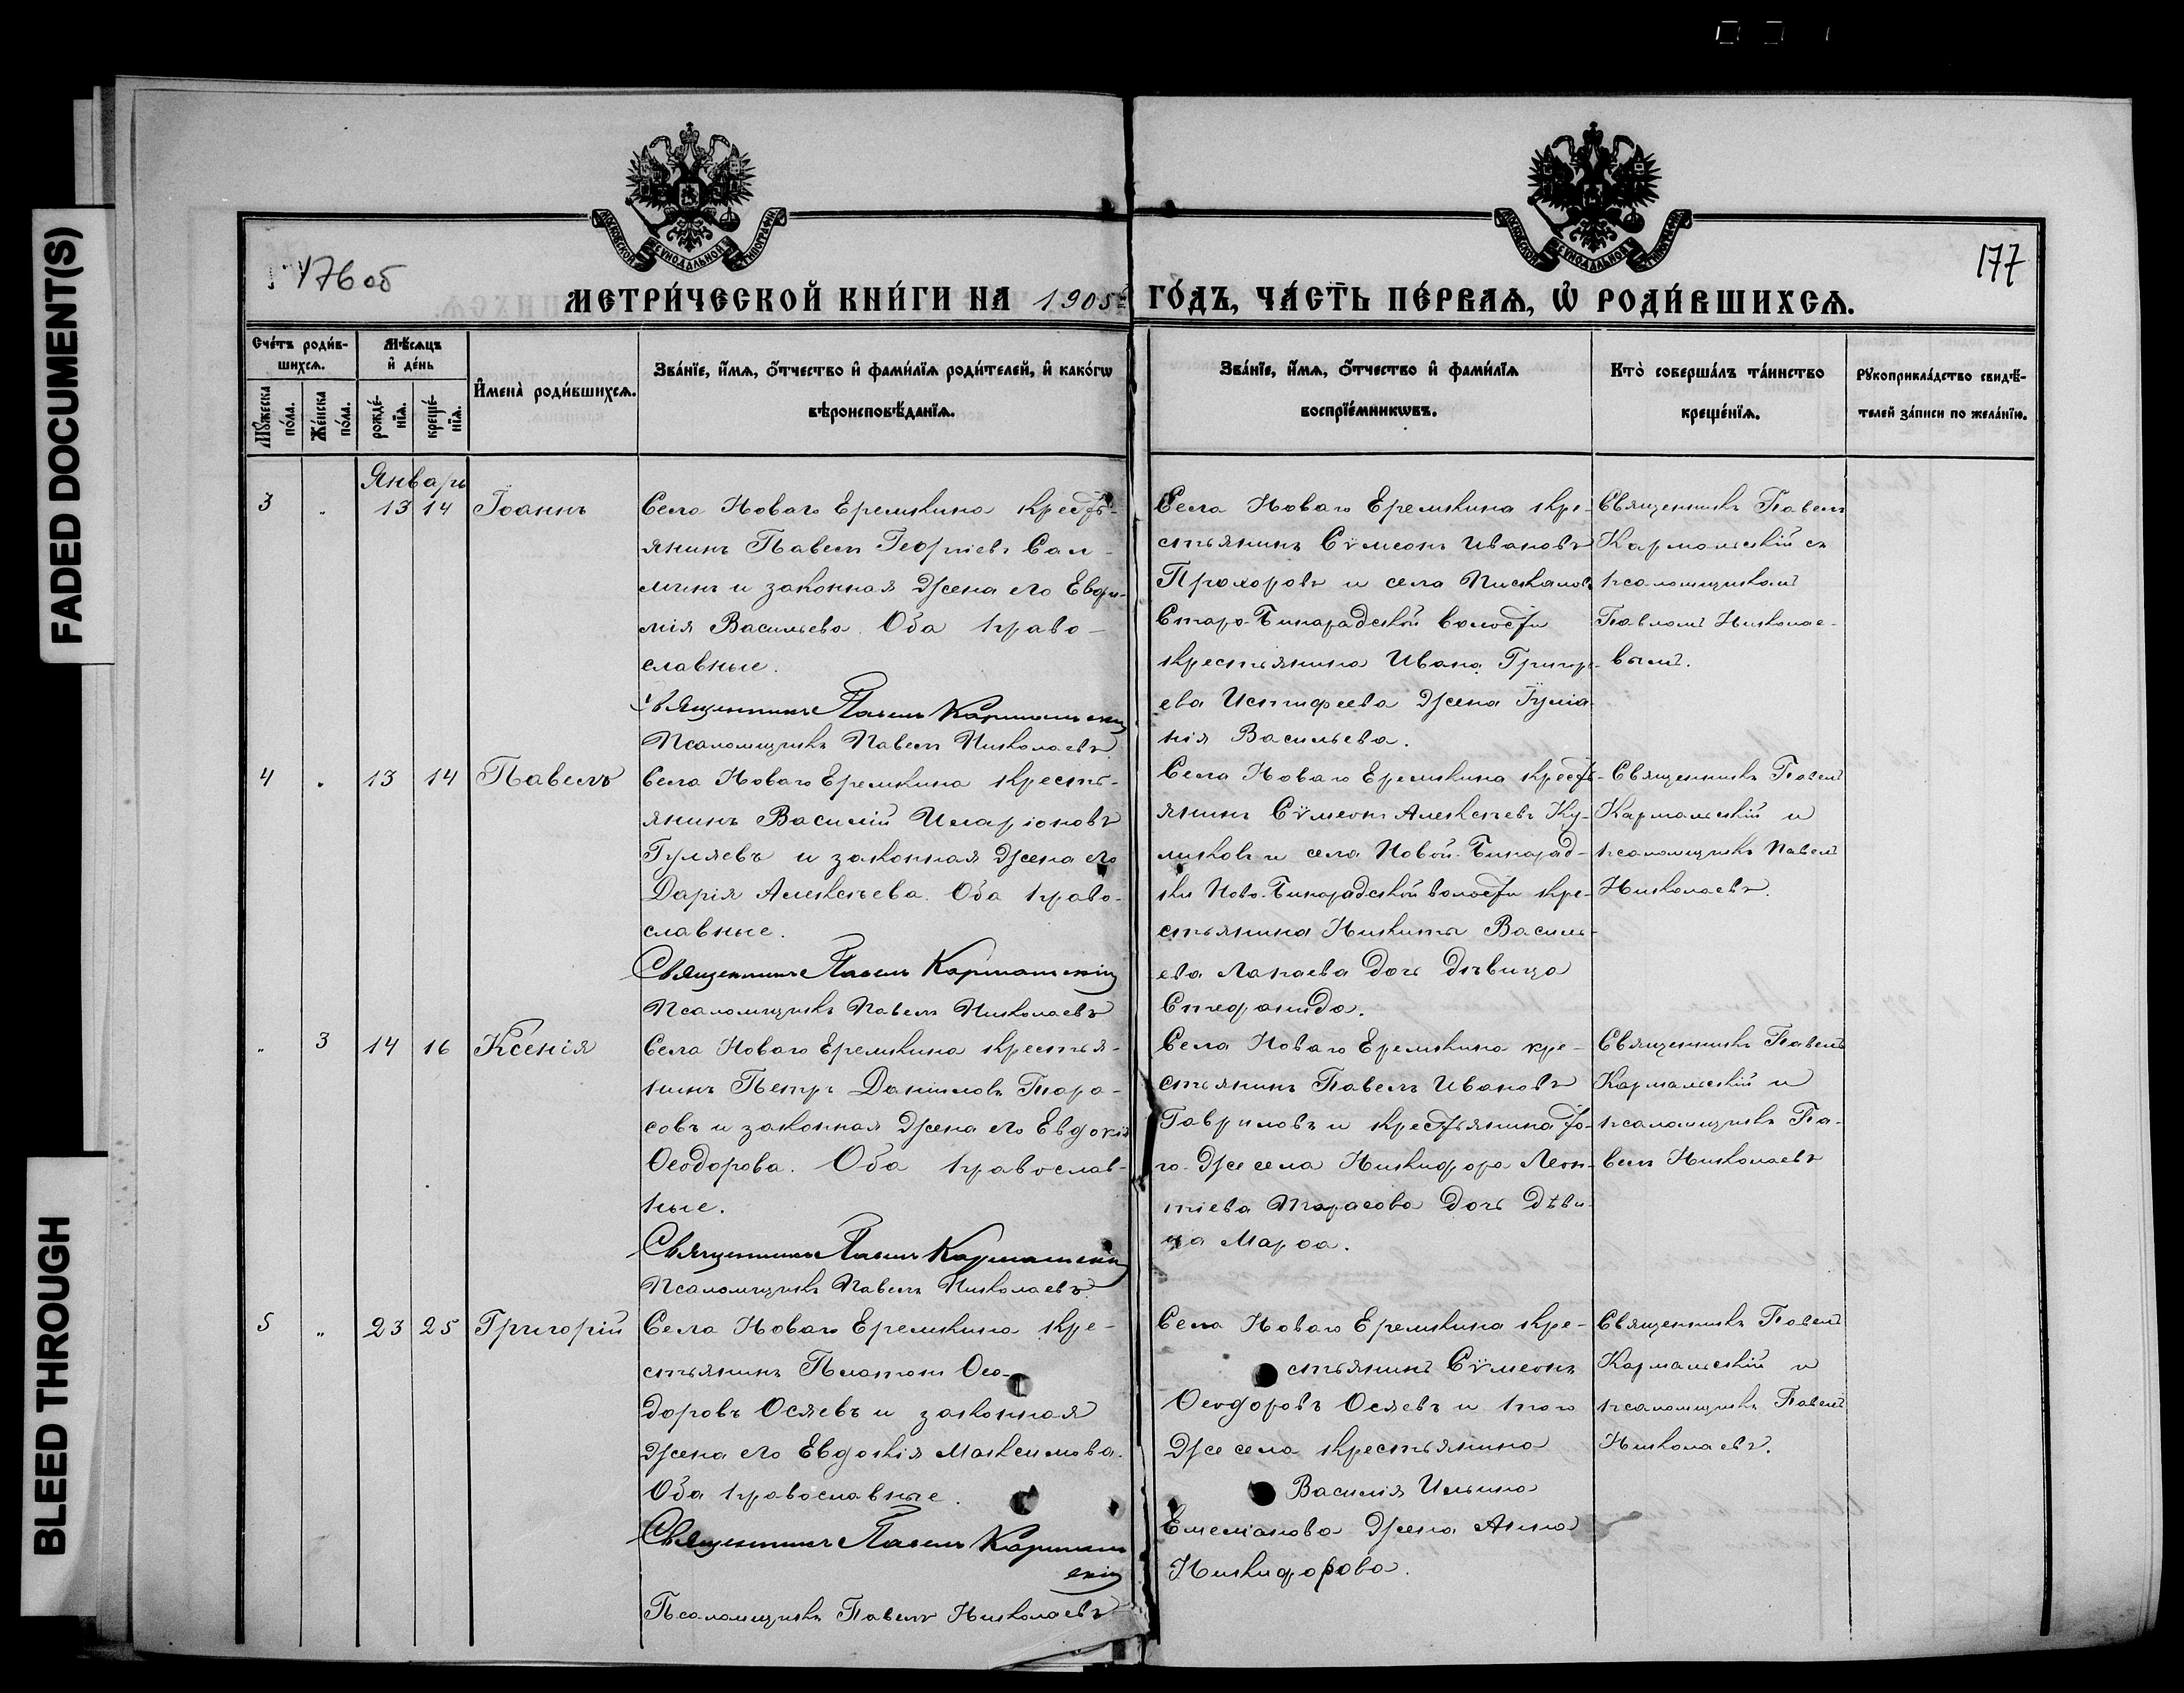 FADED DOCUMENT(S)
BLEED THROUGH
176 об
177
МОСКОВСКОЙ СѴНОДАЛЬНОЙ ТИПОГРАФІИ
МОСКОВСКОЙ СѴНОДАЛЬНОЙ ТИПОГРАФІИ
МЕТРИ́ЧЕСКОЙ КНИ́ГИ НА 1905 ГО́ДЪ, ЧА́СТЬ ПЕ́РВАѦ, Ѡ҆ РОДИ́ВШИХСѦ.
Сче́тъ роди́в-
шихсѧ.
Мꙋ́жеска
по́ла.
Же́нска
по́ла.
Мѣ́сѧцъ
и҆ де́нь
рожде́-
нїѧ.
креще́-
нїѧ.
И҆мена̀ роди́вшихсѧ.
Зва́нїе, и҆́мѧ, ѻ҆́тчество и҆ фами́лїѧ роди́телей, и҆ како́гѡ
вѣроисповѣ́данїѧ.
Зва́нїе, и҆́мѧ, ѻ҆́тчество и҆ фами́лїѧ
воспрїе́мникѡвъ.
Кто̀ соверша́лъ та́инство
креще́нїѧ.
Рꙋкоприкла́дство свидѣ́-
телей за́писи по жела́нїю.
Январь
3 " 13 14 Іоаннъ
Села Новаго Еремкина кресть-
янинъ Павелъ Георгіевъ Сал-
минъ и законная жена его Евфи-
мія Васильева. Оба право-
славные.
Священникъ Павелъ Кармальскій
Псаломщикъ Павелъ Николаевъ
Села Новаго Еремкина кре-
стьянинъ Сѵмеонъ Ивановъ
Прохоровъ и села Пискаловъ
Старо-Бинарадской волости
крестьянина Ивана Григорь-
ева Истифеева жена Іуліа-
нія Васильева.
Священникъ Павелъ
Кармальскій съ
псаломщикомъ
Павломъ Николае-
вымъ.
4 " 13 14 Павелъ
Села Новаго Еремкина кресть-
янинъ Василій Иларіоновъ
Гуляевъ и законная жена его
Дарія Алексѣева. Оба право-
славные.
Священникъ Павелъ Кармальскій
Псаломщикъ Павелъ Николаевъ
Села Новаго Еремкина кресть-
янинъ Сѵмеонъ Алексѣевъ Ку-
ликовъ и села Новой-Бинарад-
ки Ново-Бинарадской волости кре-
стьянина Никиты Василь-
ева Лапаева дочь дѣвица
Стефанида.
Священникъ Павелъ
Кармальскій и
псаломщикъ Павелъ
Николаевъ.
" 3 14 16 Ксенія
Села Новаго Еремкина крестья-
нинъ Петръ Даниловъ Тара-
совъ и законная жена его Евдокія
Ѳеодорова. Оба православ-
ные.
Священникъ Павелъ Кармальскій
Псаломщикъ Павелъ Николаевъ
Села Новаго Еремкина кре-
стьянинъ Павелъ Ивановъ
Гавриловъ и крестьянина то-
го-же села Никифора Леон-
тіева Тарасова дочь дѣви-
ца Марѳа.
Священникъ Павелъ
Кармальскій и
псаломщикъ Па-
велъ Николаевъ
5 " 23 25 Григорій
Села Новаго Еремкина кре-
стьянинъ Платонъ Ѳео-
доровъ Осяевъ и законная
жена его Евдокія Максимова.
Оба православные.
Священникъ Павелъ Кармаль
скій
Псаломщикъ Павелъ Николаевъ
Села Новаго Еремкина кре-
стьянинъ Сѵмеонъ
Ѳеодоровъ Осяевъ и того
же села крестьянина
Василія Ильина
Емеліанова жена Анна
Никифорова.
Священникъ Павелъ
Кармальскій и
псаломщикъ Павелъ
Николаевъ.